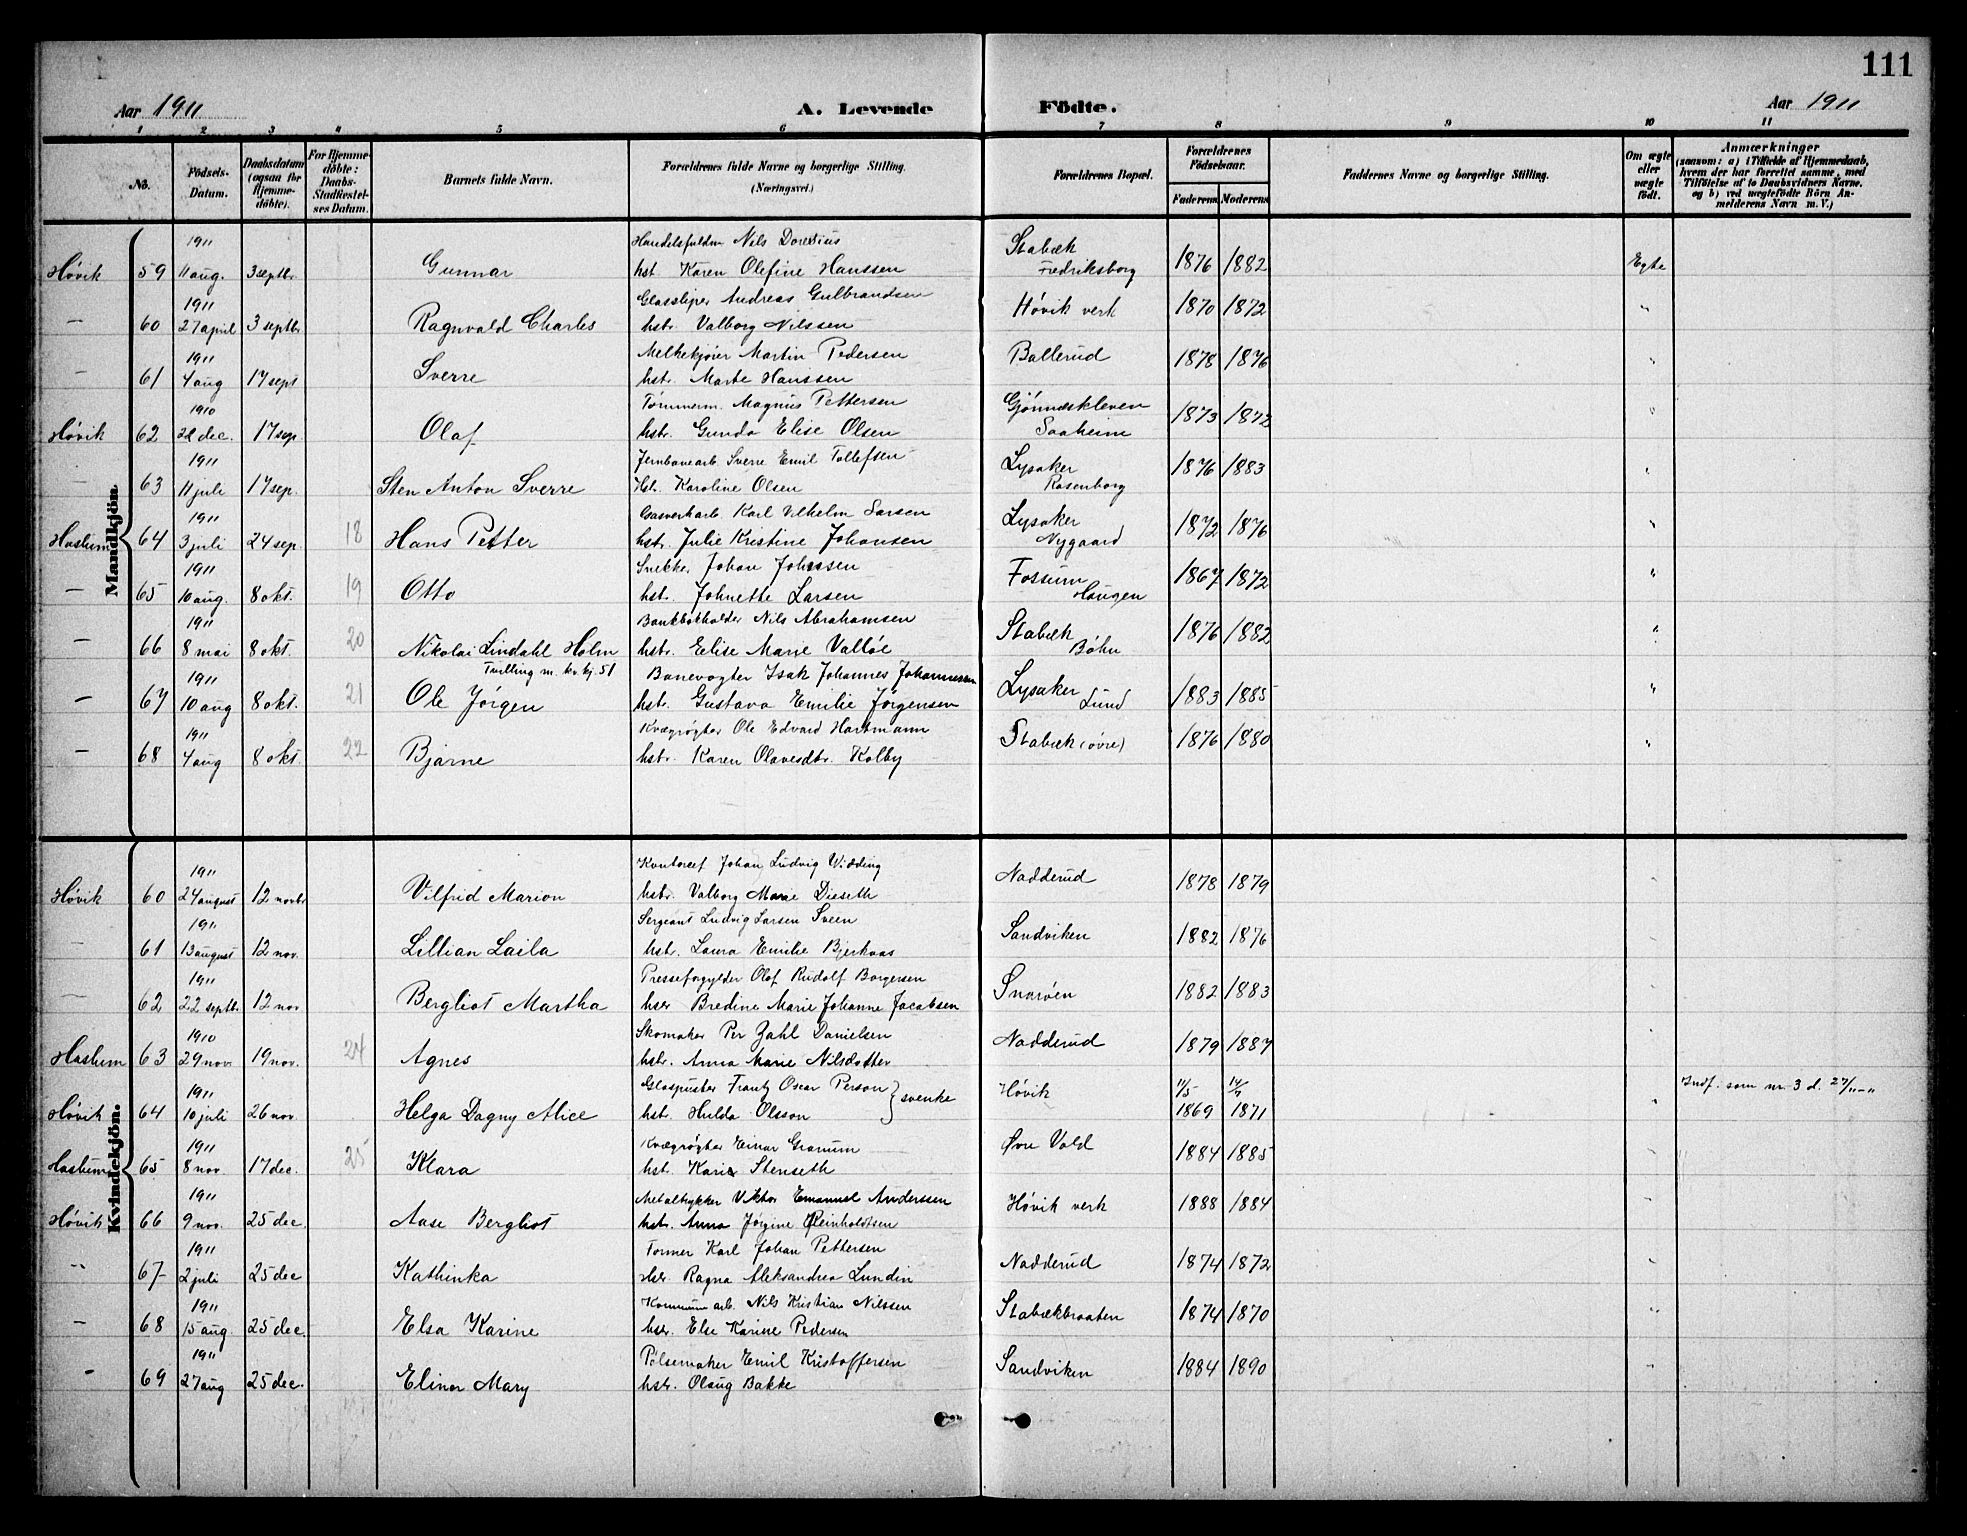 111
Aar 1911 A. Levende Födte. Aar 1911
1 2 3 4 5 6 7 8 9 10 11
No. Födsels-Datum. Daabsdatum (ogsaa for Hjemme-döbte). For Hjemme-döbte: Daabs-Stadfæstel-ses Datum. Barnets fulde Navn. Forældrenes fulde Navne og borgerlige Stilling. (Næringsvei.) Forældrenes Bopæl. Forældrenes Födselsaar. Faderens Moderens Faddernes Navne og borgerlige Stilling. Om ægte eller uægte födt. Anmærkninger (saasom: a) i Tilfælde af Hjemmedaab, hvem der har forrettet samme, med Tilföielse af to Daabsvidners Navne. og b) ved uægtefödte Börn An-melderens Navn m. V.)
Mandkjön
1911 Handelsfuldm Nils Stabæk
Høvik 59 11 aug. 3 septbr. Gunnar hst. Karen Olefine Hanssen Fredriksborg 1876 1882 Egte
1911 Glassliper Andreas Gulbrandsen
— 60 27 april 3 septbr Ragnvald Charles hstr. Valborg Nilssen Høvik verk 1870 1872 "
1911 Melkekjører Martin Pedersen
— 61 4 aug 17 sept Sverre hstr. Marte Hanssen Ballerud 1878 1876 "
1910 Tømmerm. Magnus Pettersen Gjønnæskleven
Høvik 62 22 dec. 17 sep Olaf hstr. Gunda Elise Olsen Saaheim 1873 1872 "
1911 Jernbanearb. Sverre Emil Tollefsen Lysaker
— 63 11 juli 17 sep. Sten Anton Sverre Hst. Karoline Olsen Rosenborg 1876 1883 "
1911 Gasverkarb. Karl Vilhelm Larsen Lysaker
Haslum 64 3 juli 24 sep. 18 Hans Petter hstr. Julie Kristine Johansen Nygaard 1872 1876 "
1911 Snekker Johan Johnssen Fossum
— 65 10 aug. 8 okt. 19 Otto hst. Johnette Larsen Haugen 1867 1872 "
1911 Bankbokholder Nils Abrahamsen Stabæk
— 66 8 mai 8 okt. 20 Nikolai Lindahl Holm hstr. Elise Marie Valløe Bøhn 1876 1882 "
Tvilling m. kv. kj. 51
1911 Banevogter Isak Johannes Johannessen Lysaker
— 67 10 aug 8 okt. 21 Ole Jørgen hstr. Gustava Emilie Jørgensen Lund 1883 1885 "
1911 Kvægrøgter Ole Edvard Hartmann
— 68 4 aug 8 okt. 22 Bjarne hstr. Karen Olavesdtr. Kolby Stabæk (øvre) 1876 1880 "
Kvindekjön.
1911 Kontorchef Johan Ludvig Widding
Høvik 60 24 august 12 novbr Vilfrid Marion hstr. Valborg Marie Dieseth Nadderud 1878 1879 "
1911 Sergeant Ludvig Larsen Sveen
— 61 13 august 12 nov. Lillian Laila hst. Laura Emilie Bjerkaas Sandviken 1882 1876 "
1911 Presseforgylder Olaf Rudolf Borgersen
— 62 22 septbr. 12 nov Bergliot Martha hstr Bredine Marie Johanne Jacobsen Snarøen 1882 1883
1910 Skomaker Per Zahl Danielsen
Haslum 63 29 nov. 19 nov. 24 Agnes hstr. Anna Marie Nilsdatter Nadderud 1879 1887
1911 Glaspuster Frantz Oscar Person } svenske 11/5 14/7 Indf. som nr. 3 d. 27/11-11
Høvik 64 10 juli 26 nov Helga Dagny Alice hst. Hulda Olsson Høvik 1869 1871 "
1911 Kvægrøgter Einar Granum
Haslum 65 8 nov. 17 dec. 25 Klara hst. Karie Stenseth Øvre Vold 1884 1885 "
1911 Metaltrykker Viktor Emanuel Anderssen
Høvik 66 9 nov. 25 dec. Aase Bergliot hstr. Anna Jørgine Reinholdtsen Høvik verk 1888 1884 "
1911 Former Karl Johan Pettersen
" 67 2 juli 25 dec Kathinka Hstr. Ragna Aleksandrea Lundin Nadderud 1874 1872 "
1911 Kommunearb. Nils Kristian Nilssen
— 68 15 aug. 25 dec. Elsa Karine hstr. Else Karine Pedersen Stabækbraaten 1874 1870 "
1911 Pølsemaker Emil Kristoffersen
— 69 27 aug 25 dec. Elinor Mary hstr. Olaug Bakke Sandviken 1884 1890 "